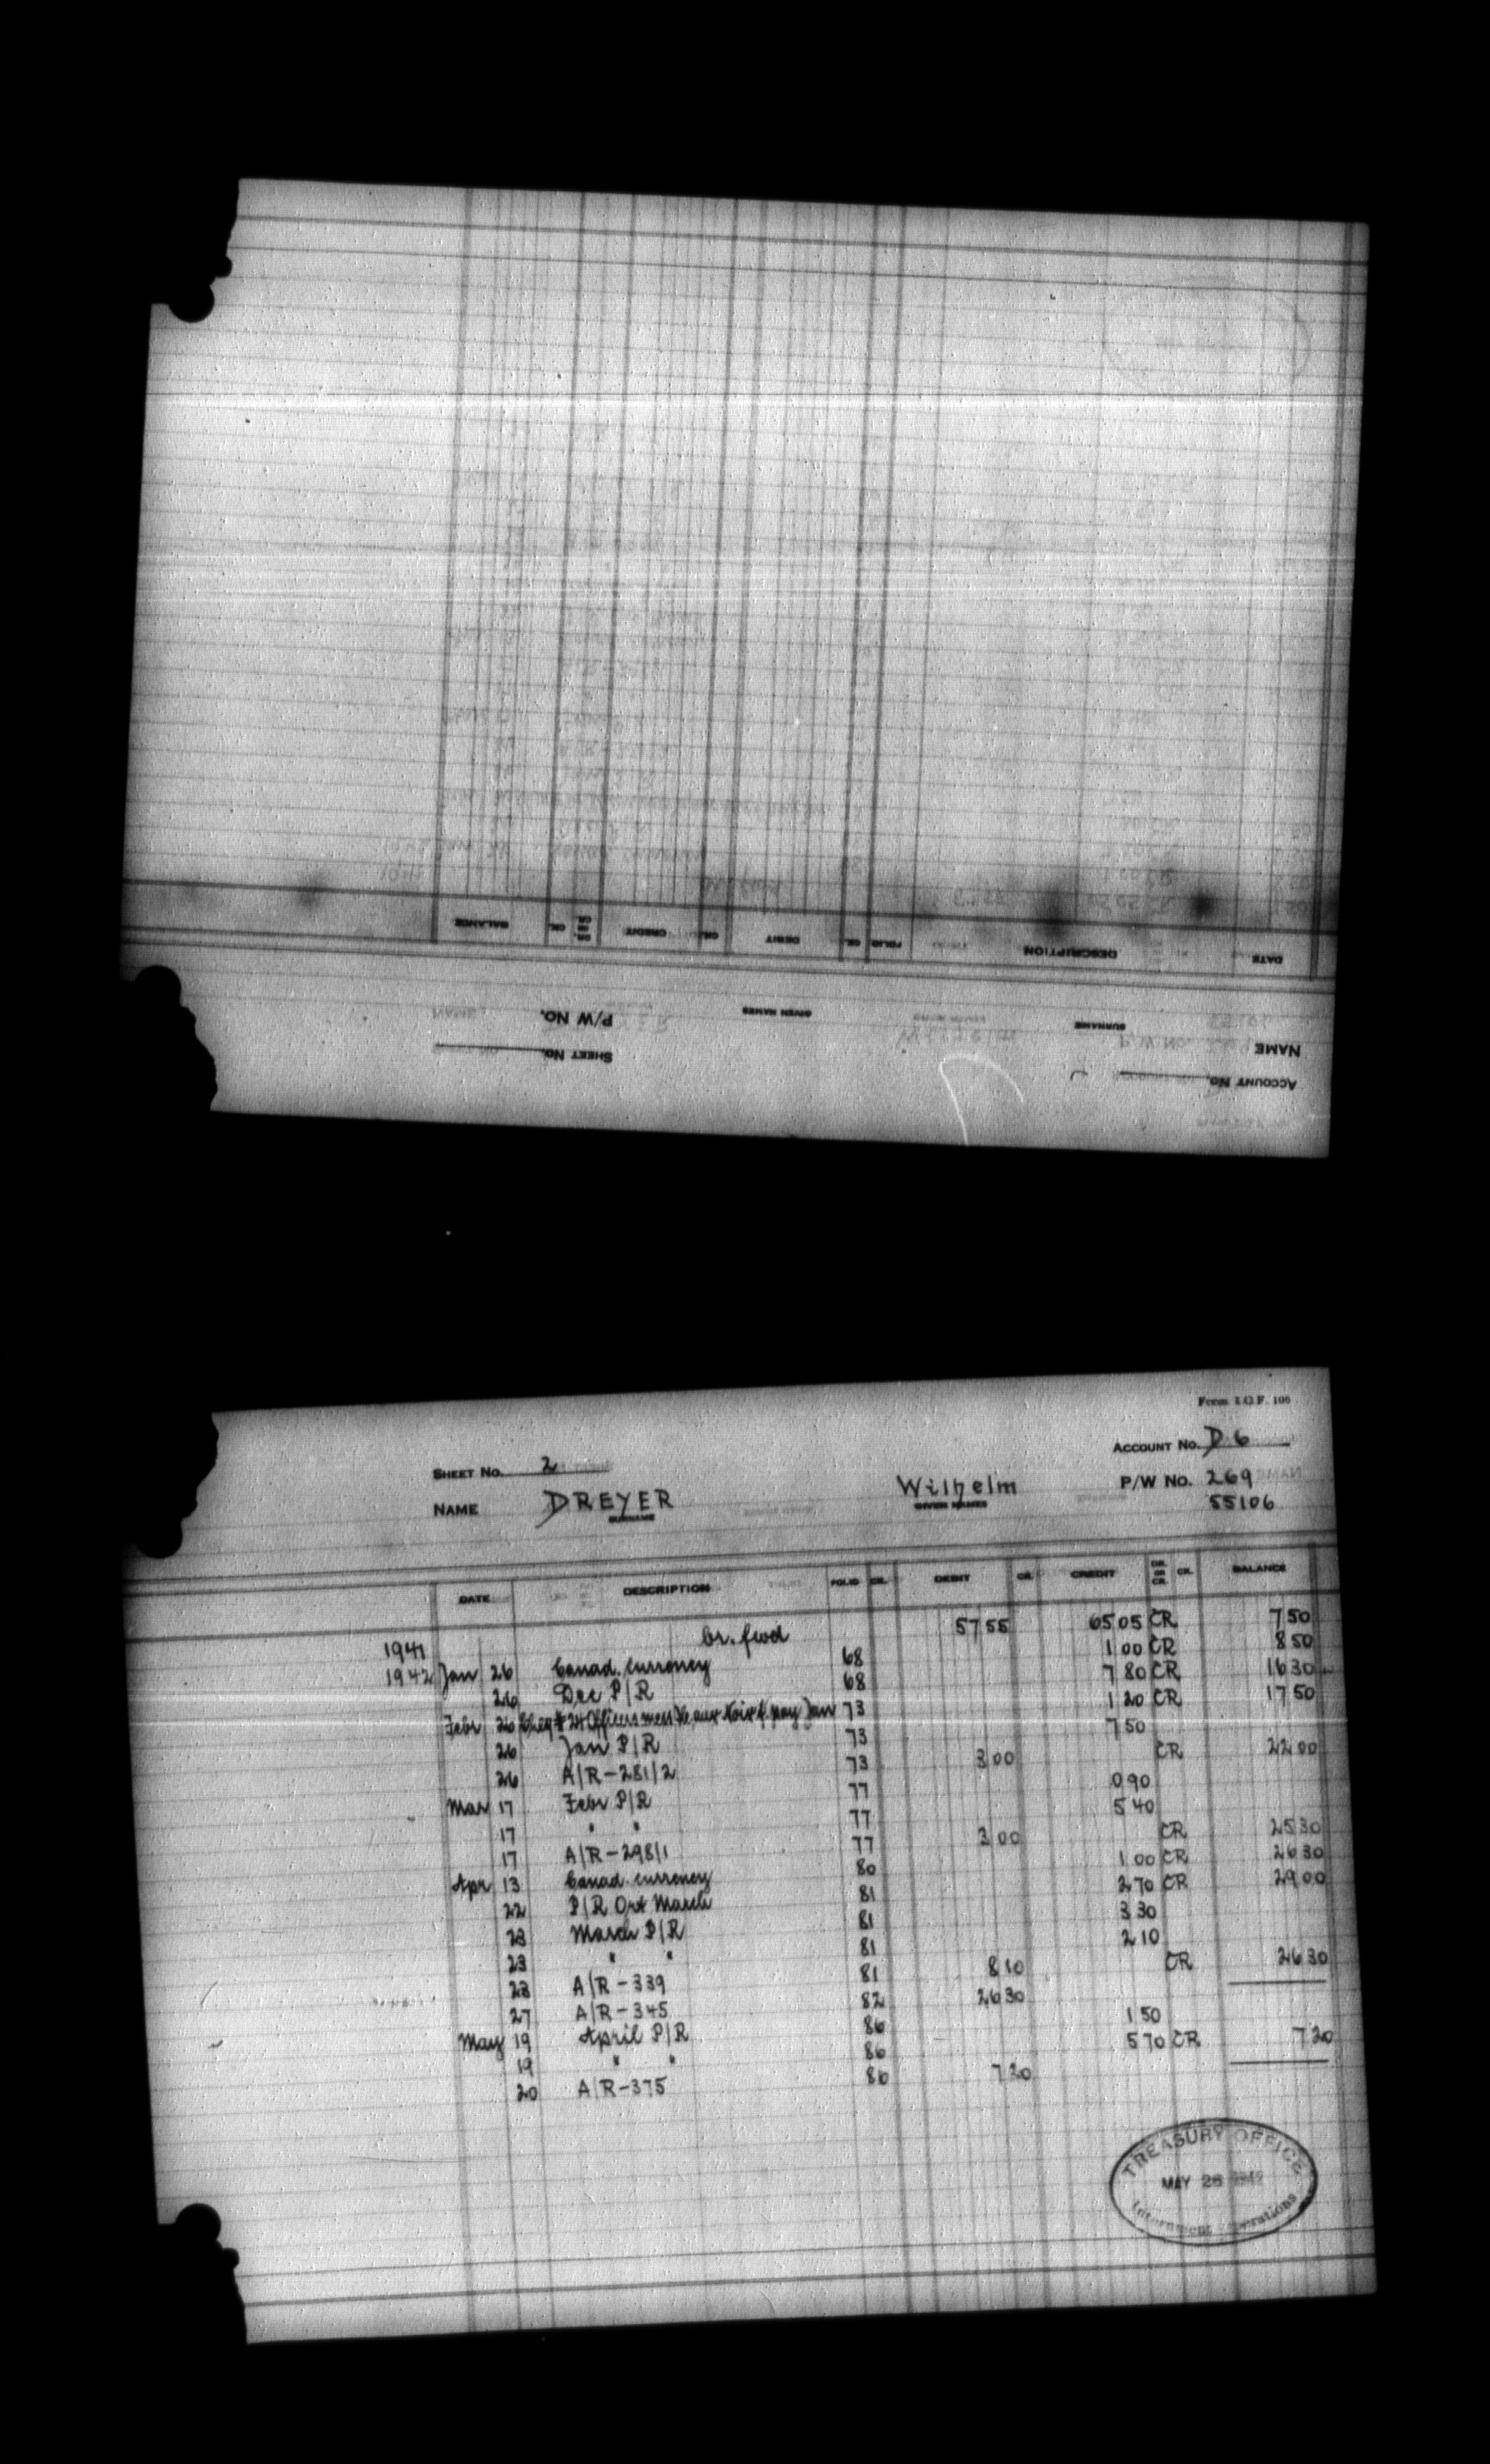 BALANCE CR. DR. OR CR. CREDIT CR. DEBIT CR. FOLIO DESCRIPTION DATE
P/W NO. GIVEN NAMES SURNAME NAME
SHEET NO. ACCOUNT NO.
Form I.O.F. 106
SHEET NO. 2 ACCOUNT NO. D 6
NAME DREYER Wilhelm P/W NO. 269
SURNAME GIVEN NAMES 55106
DATE DESCRIPTION FOLIO CR. DEBIT CR. CREDIT DR. OR CR. CR. BALANCE
1941 br. fwd 57 55 65 05 CR 7 50
1942 Jan 26 Canad. Currency 68 1 00 CR 8 50
26 Dec P/R 68 7 80 CR 16 30
Febr 26 Cheq # 24 Officers mess f. pay Jan 73 1 20 CR 17 50
26 Jan P/R 73 7 50
26 A/R-281/2 73 3 00 CR 22 00
Mar 17 Febr P/R 77 0 90
17 " " 77 5 40
17 A/R-298/1 77 3 00 CR 25 30
Apr 13 Canad. Currency 80 1 00 CR 26 30
22 P/R Ord March 81 2 70 CR 29 00
23 March P/R 81 3 30
23 " " 81 2 10
23 A/R-339 81 8 10 CR 26 30
27 A/R-345 82 26 30
May 19 April P/R 86 1 50
19 " " 86 5 70 CR 7 20
20 A/R-375 86 7 20
TREASURY OFFICE
MAY 28 1942
Internment Operations